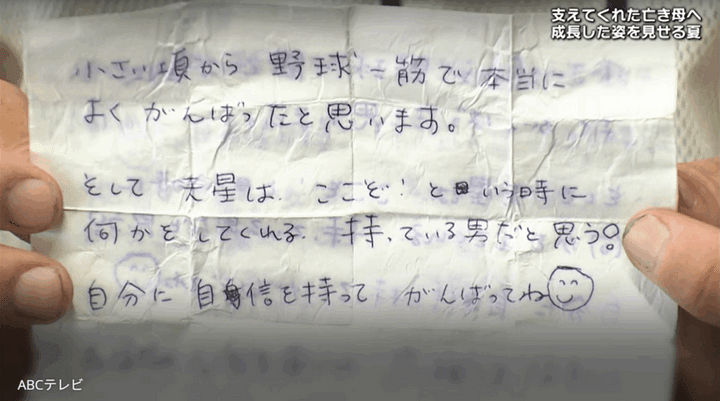 支えてくれた亡き母へ
成長した姿を見せる夏
小さい頃から 野球一筋で 本当に
よく がんばったと思います。
そして 天星は、ここぞ！と いう時に
何かをしてくれる、持っている男だと思う。
自分に 自信を持って がんばってね
ABCテレビ